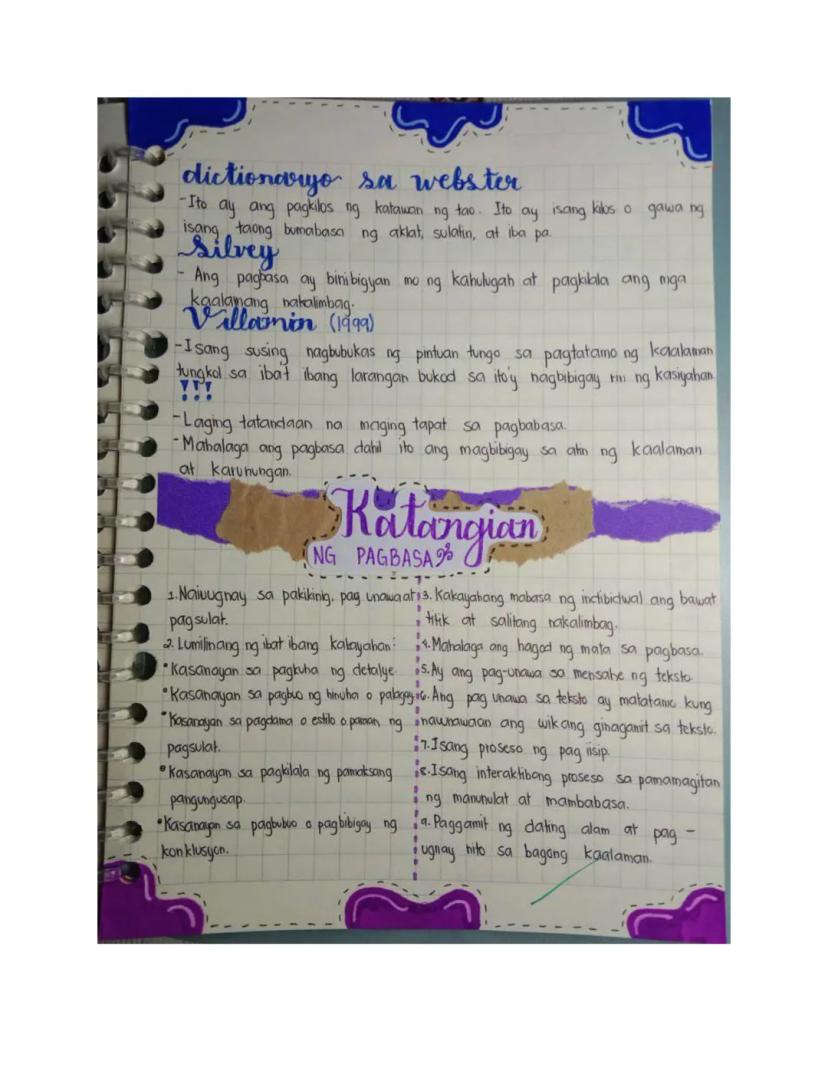 dictionaryo sa webster
-Ito ay ang pagkilos ng katawan ng tao. Ito ay isang kilos o gawa ng
isang taong bumabasa ng aklat, sulatin, at iba pa.
Silvey
- Ang pagbasa ay binibigyan mo ng kahulugah at pagkilala ang mga
kaalamang nakalimbag.
Villamin (1999)
-Isang susing nagbubukas ng pintuan tungo sa pagtatamo ng kaalaman
tungkol sa iba't ibang larangan bukod sa ito'y nagbibigay rin ng kasiyahan
!!!
-Laging tatandaan na maging tapat sa pagbabasa.
-Mahalaga ang pagbasa dahil ito ang magbibigay sa atin ng kaalaman
at karunungan.
Katangian
NG PAGBASA
1. Naiuugnay sa pakikinig, pag unawa at
pagsulat.
2. Lumilinang ng ibat ibang kakayahan:
•Kasanayan sa pagkuha ng detalye.
•Kasanayan sa pagbuo ng hinuha o palagay
•Kasanayan sa pagdama o estilo o paraan ng
pagsulat.
•Kasanayan sa pagkilala ng pamaksang
pangungusap.
•Kasanayan sa pagbubuo o pagbibigay ng
konklusyon.
3. Kakayahang mabasa ng indibidwal ang bawat
titik at salitang nakalimbag.
4. Mahalaga ang hagod ng mata sa pagbasa.
5. Ay ang pag-unawa sa mensahe ng teksto.
6. Ang pag unawa sa teksto ay matatamo kung
nauunawaan ang wikang ginagamit sa teksto.
7. Isang proseso ng pag iisip.
8. Isang interaktibong proseso sa pamamagitan
ng manunulat at mambabasa.
9. Paggamit ng dating alam at pag -
ugnay nito sa bagong kaalaman.